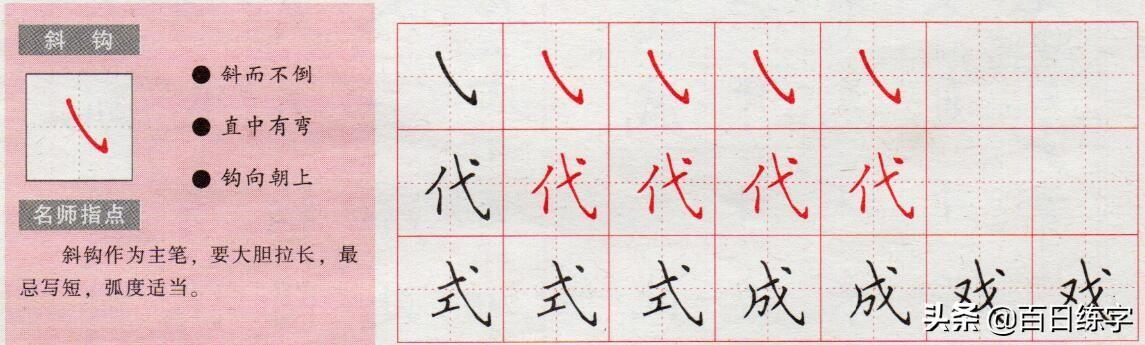 斜钩
斜而不倒
直中有弯
钩向朝上
名师指点
斜钩作为主笔，要大胆拉长，最
忌写短，弧度适当。
㇂ ㇂ ㇂ ㇂ ㇂
代 代 代 代 代
式 式 式 成 成 戏 戏
头条 @百日练字